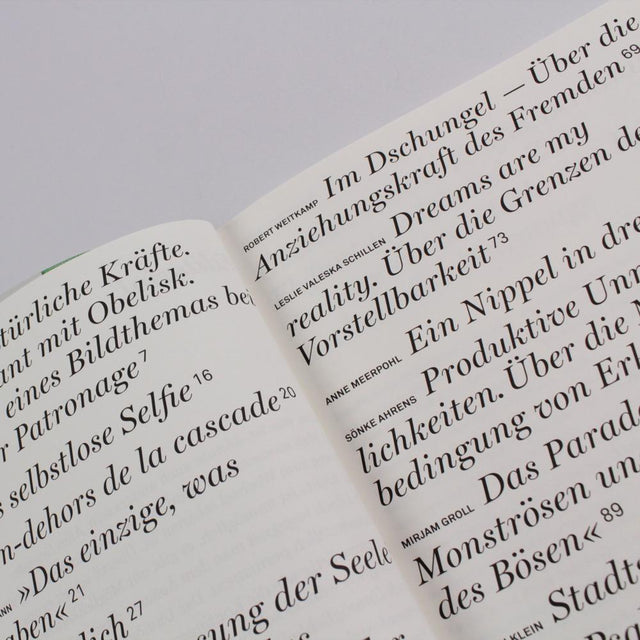 türliche Kräfte.
ant mit Obelisk.
eines Bildthemas bei
r Patronage 7
s selbstlose Selfie 16
n-dehors de la cascade 20
ANN »Das einzige, was
aben« 21
lich 27
ung der Seele
ROBERT WEITKAMP Im Dschungel – Über die
Anziehungskraft des Fremden 69
LESLIE VALESKA SCHILLEN Dreams are my
reality. Über die Grenzen de
Vorstellbarkeit 73
ANNE MEERPOHL Ein Nippel in dre
SÖNKE AHRENS Produktive Unm
lichkeiten. Über die
bedingung von Erk
MIRJAM GROLL Das Parado
Monströsen un
des Bösen« 89
KLEIN Stadts